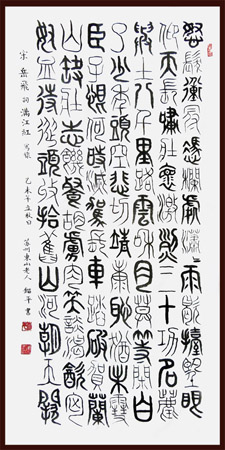 怒髮衝冠憑欄處瀟〻雨歇擡望眼
仰天長嘯壯懷激烈三十功名塵
與土八千里路雲和月莫等閒白
了少年頭空悲切靖康恥猶未雪
臣子恨何時滅駕長車踏破賀蘭
山缺壯志饑餐胡虜肉笑談渴飲匈
奴血待從頭收拾舊山河朝天闕
宋岳飛詞滿江紅寫懷乙未年立秋日蘇州東山老人平書